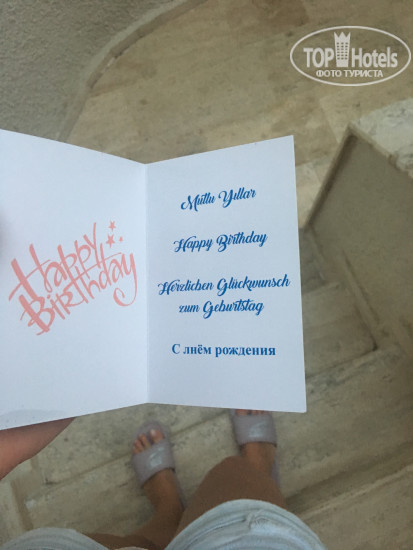 TOP Hotels
ФОТО ТУРИСТА
Happy
Birthday
Mutlu Yıllar
Happy Birthday
Herzlichen Glückwunsch
zum Geburtstag
С днём рождения